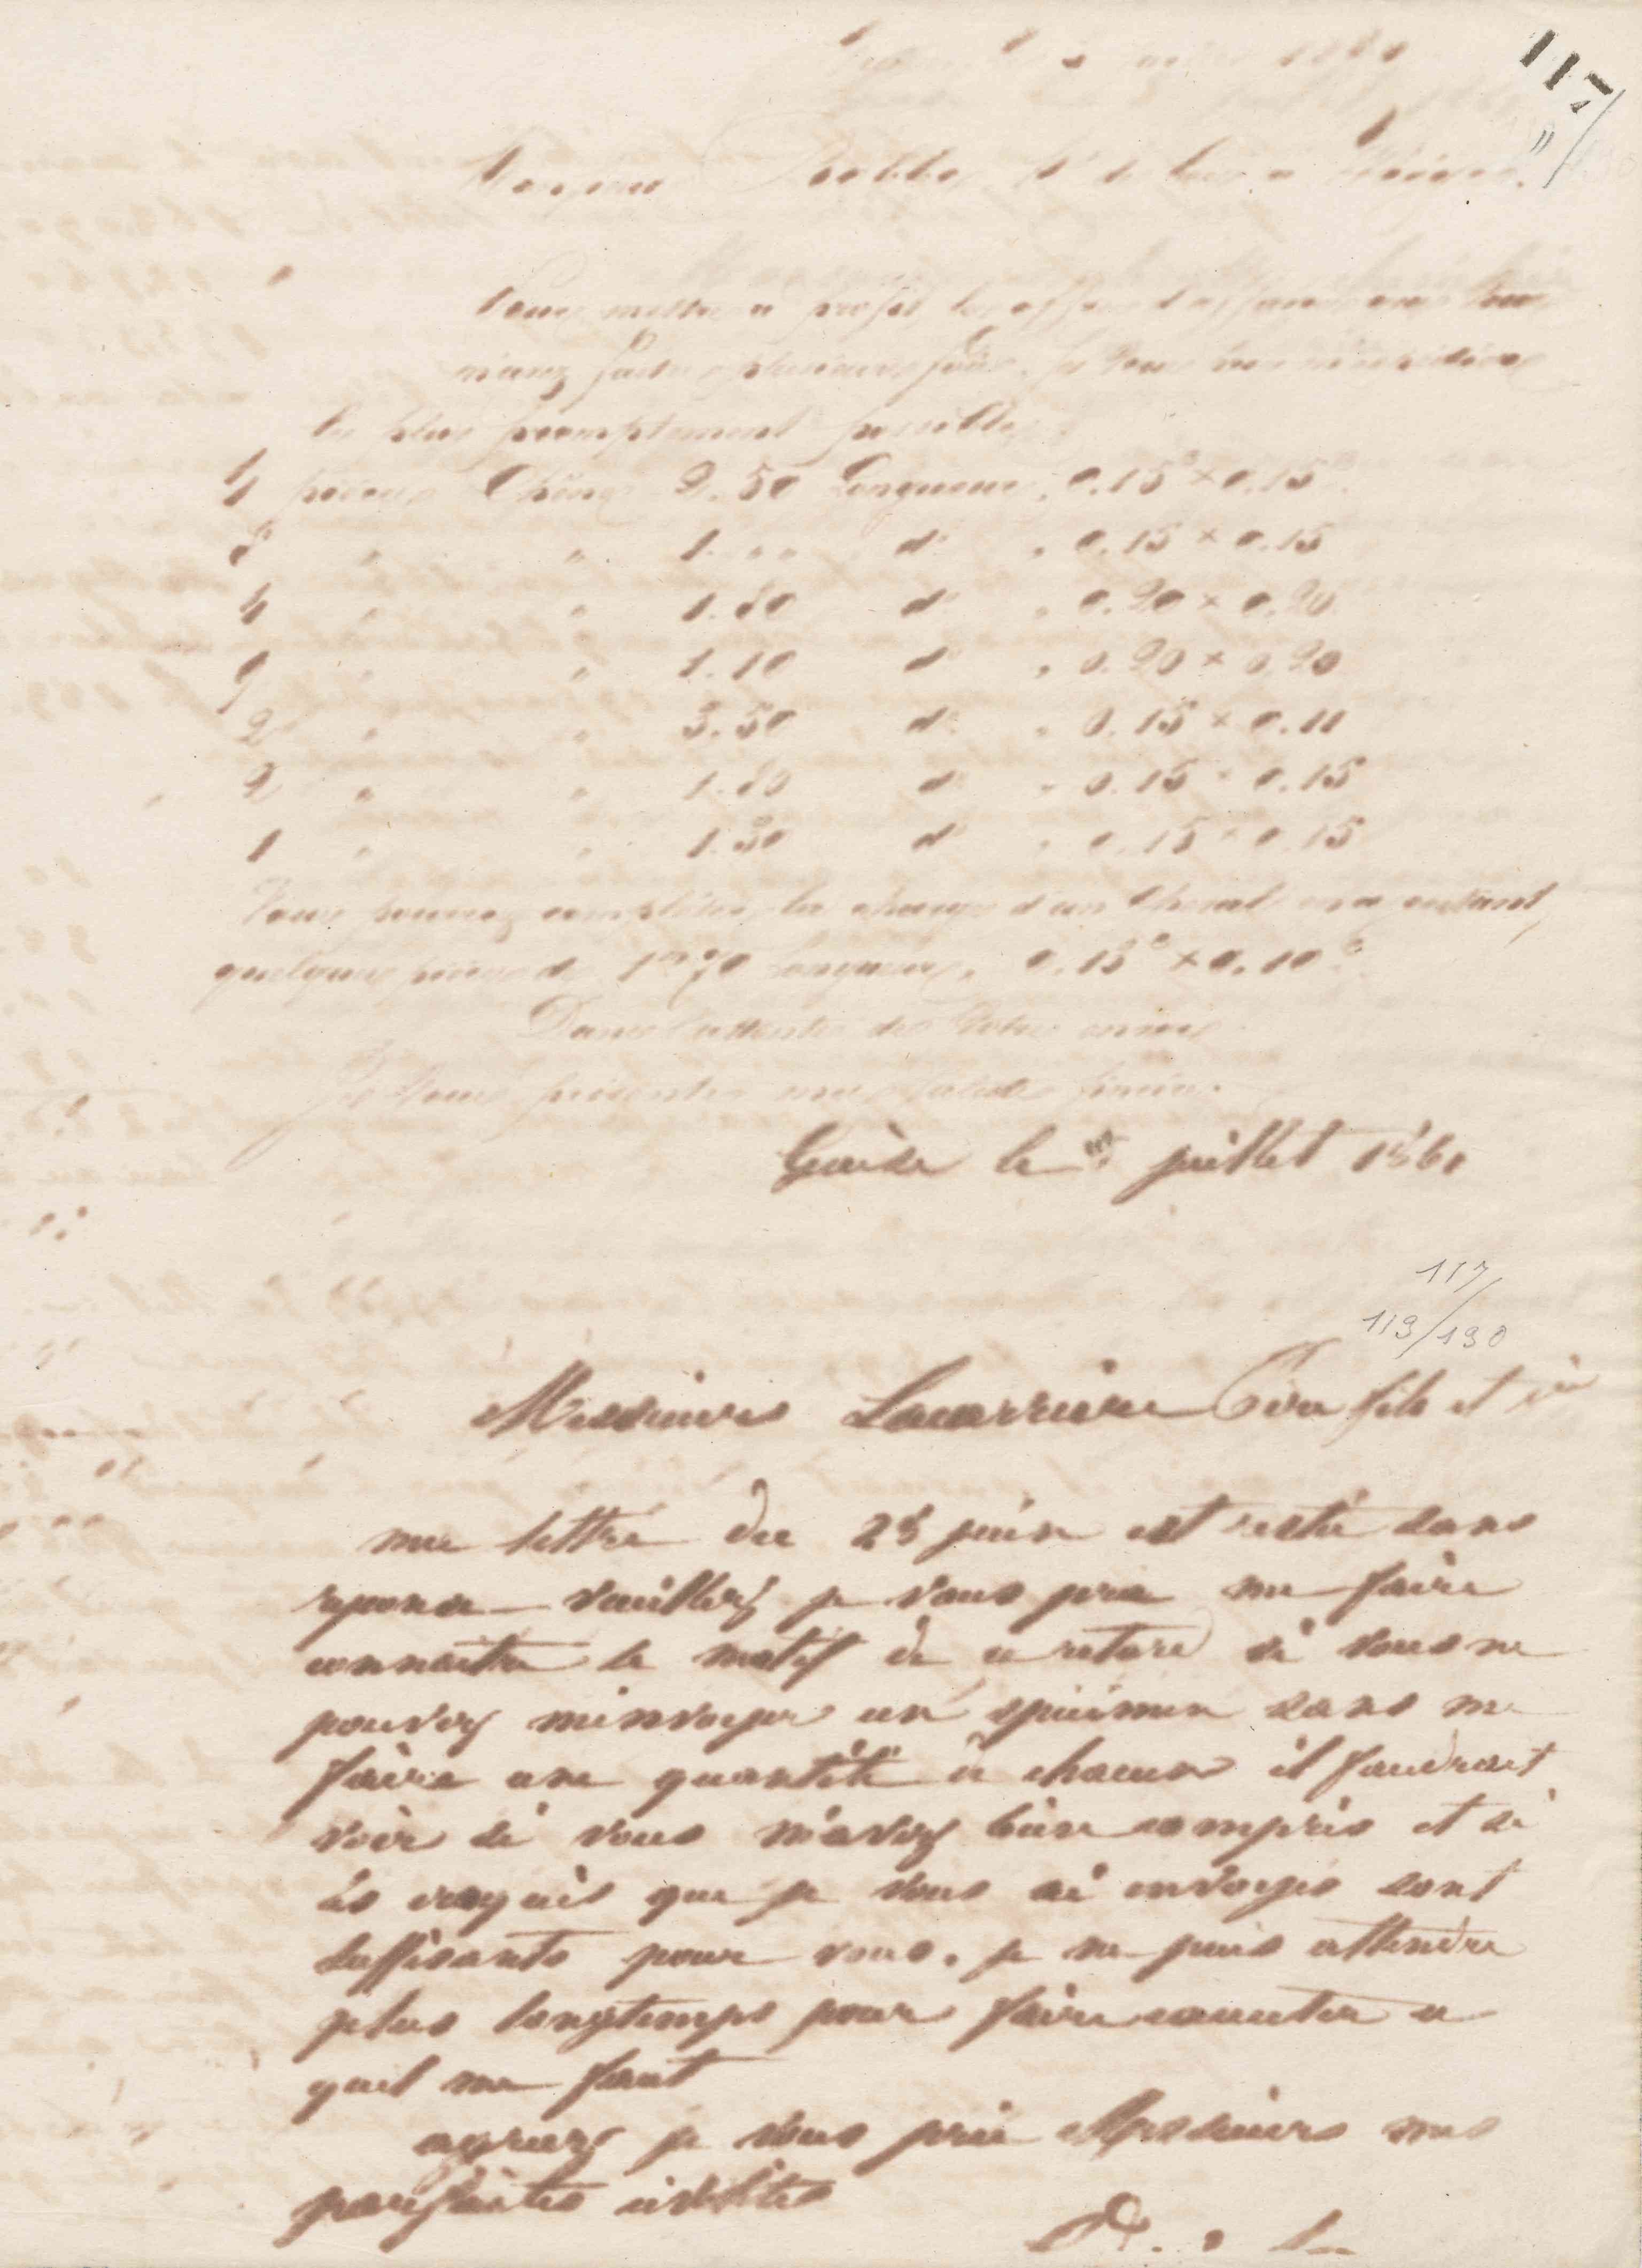 117
Monsieur
Pour mettre à profit les offres
faites plusieurs fois. Je vous
le plus promptement possible
4 pièces Chêne 2.50 Longueur, 0.15ᶜ × 0.15ᶜ
8 " " 1. " " dº , 0.15 × 0.15
4 " " 1.80 dº , 0.20 × 0.20
9 " " 1.10 dº , 0.20 × 0.20
2 " " 3.50 dº , 0.15 × 0.11
2 " " 1.80 dº , 0.15 × 0.15
1 " " 1.30 dº , 0.15 × 0.15
Vous pouvez compléter la charge d'un cheval en ajoutant
quelques pièces de 1ᵐ70 Longueur, 0.15ᶜ × 0.10ᶜ
Dans l'attente de votre envoi
Je vous présente mes salutations
Guise le juillet 1861
117/
119/130
Messieurs Lacarriere Père fils et Cie
ma lettre du 25 juin est resté sans
reponse veuillez je vous prie me faire
connaitre le motif de ce retard si vous ne
pouvez m'envoyer un spécimen sans me
faire une quantité de chacun il faudrait
voir si vous m'avez bien compris et si
les croquis que je vous ai envoyés sont
suffisants pour vous. je ne puis attendre
plus longtemps pour faire executer ce
quil me faut
agreez je vous prie Messieurs mes
parfaites civilités